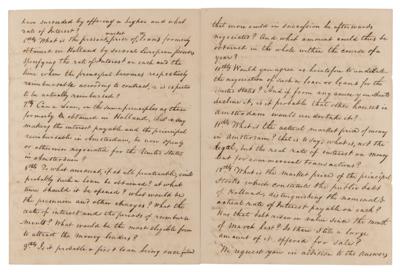 have succeeded by offering a higher and what
rate of Interest?
6th What is the present market price of Loans formerly
obtained in Holland by several European powers
specifying the rate of Interest on each and the
time when the principal becomes respectively
reimbursable according to contract, & is expected
to be actually reimbursed?
7th Can a Loan, on the same principles as those
formerly to obtained in Holland, that is say
making the interest payable and the principal
reimbursable in Amsterdam, be now opened
or otherwise negotiated for the United States
in Amsterdam?
8th To what amount, if at all practicable, could
probably such a Loan be obtained? at what
time should it be opened? what would be
the premium and other charges? What the
rate of interest and the periods of reimburse
ment? What would be the most eligible form
to attract the money lenders?
9th Is it probable a first loan being succeeded
that more could in succession be afterwards
negotiated? And what amount could thus be
obtained in the whole within the course of a
year?
10th Would you agree as heretofore to undertake
the negociation of such a loan or loans for the
United States? And if from any cause you should
decline it, is it probable that other houses in
Amsterdam would undertake it?
11th What is the actual market price of money
in Amsterdam? that is to say what is, not the
legal, but the real rate of interest on money
lent for commercial transactions?
12th What is the market price of the principal
Stocks which constitute the public debt
of Holland, distinguishing the nominal &
actual rate of Interest payable on each?
Has that debt risen in value since the month
of March last? Is there still a large
amount of it offered for sale?
We request you in addition to the answers